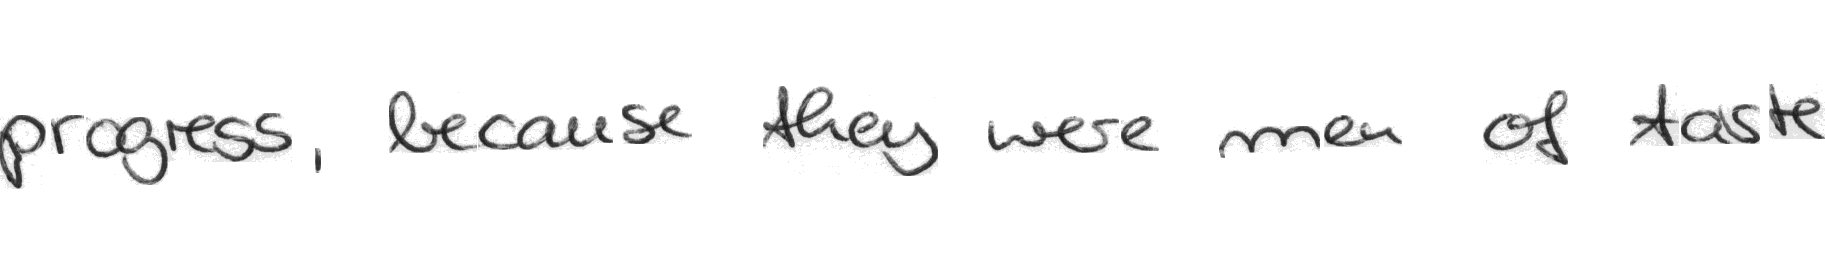 progress, because they were men of taste